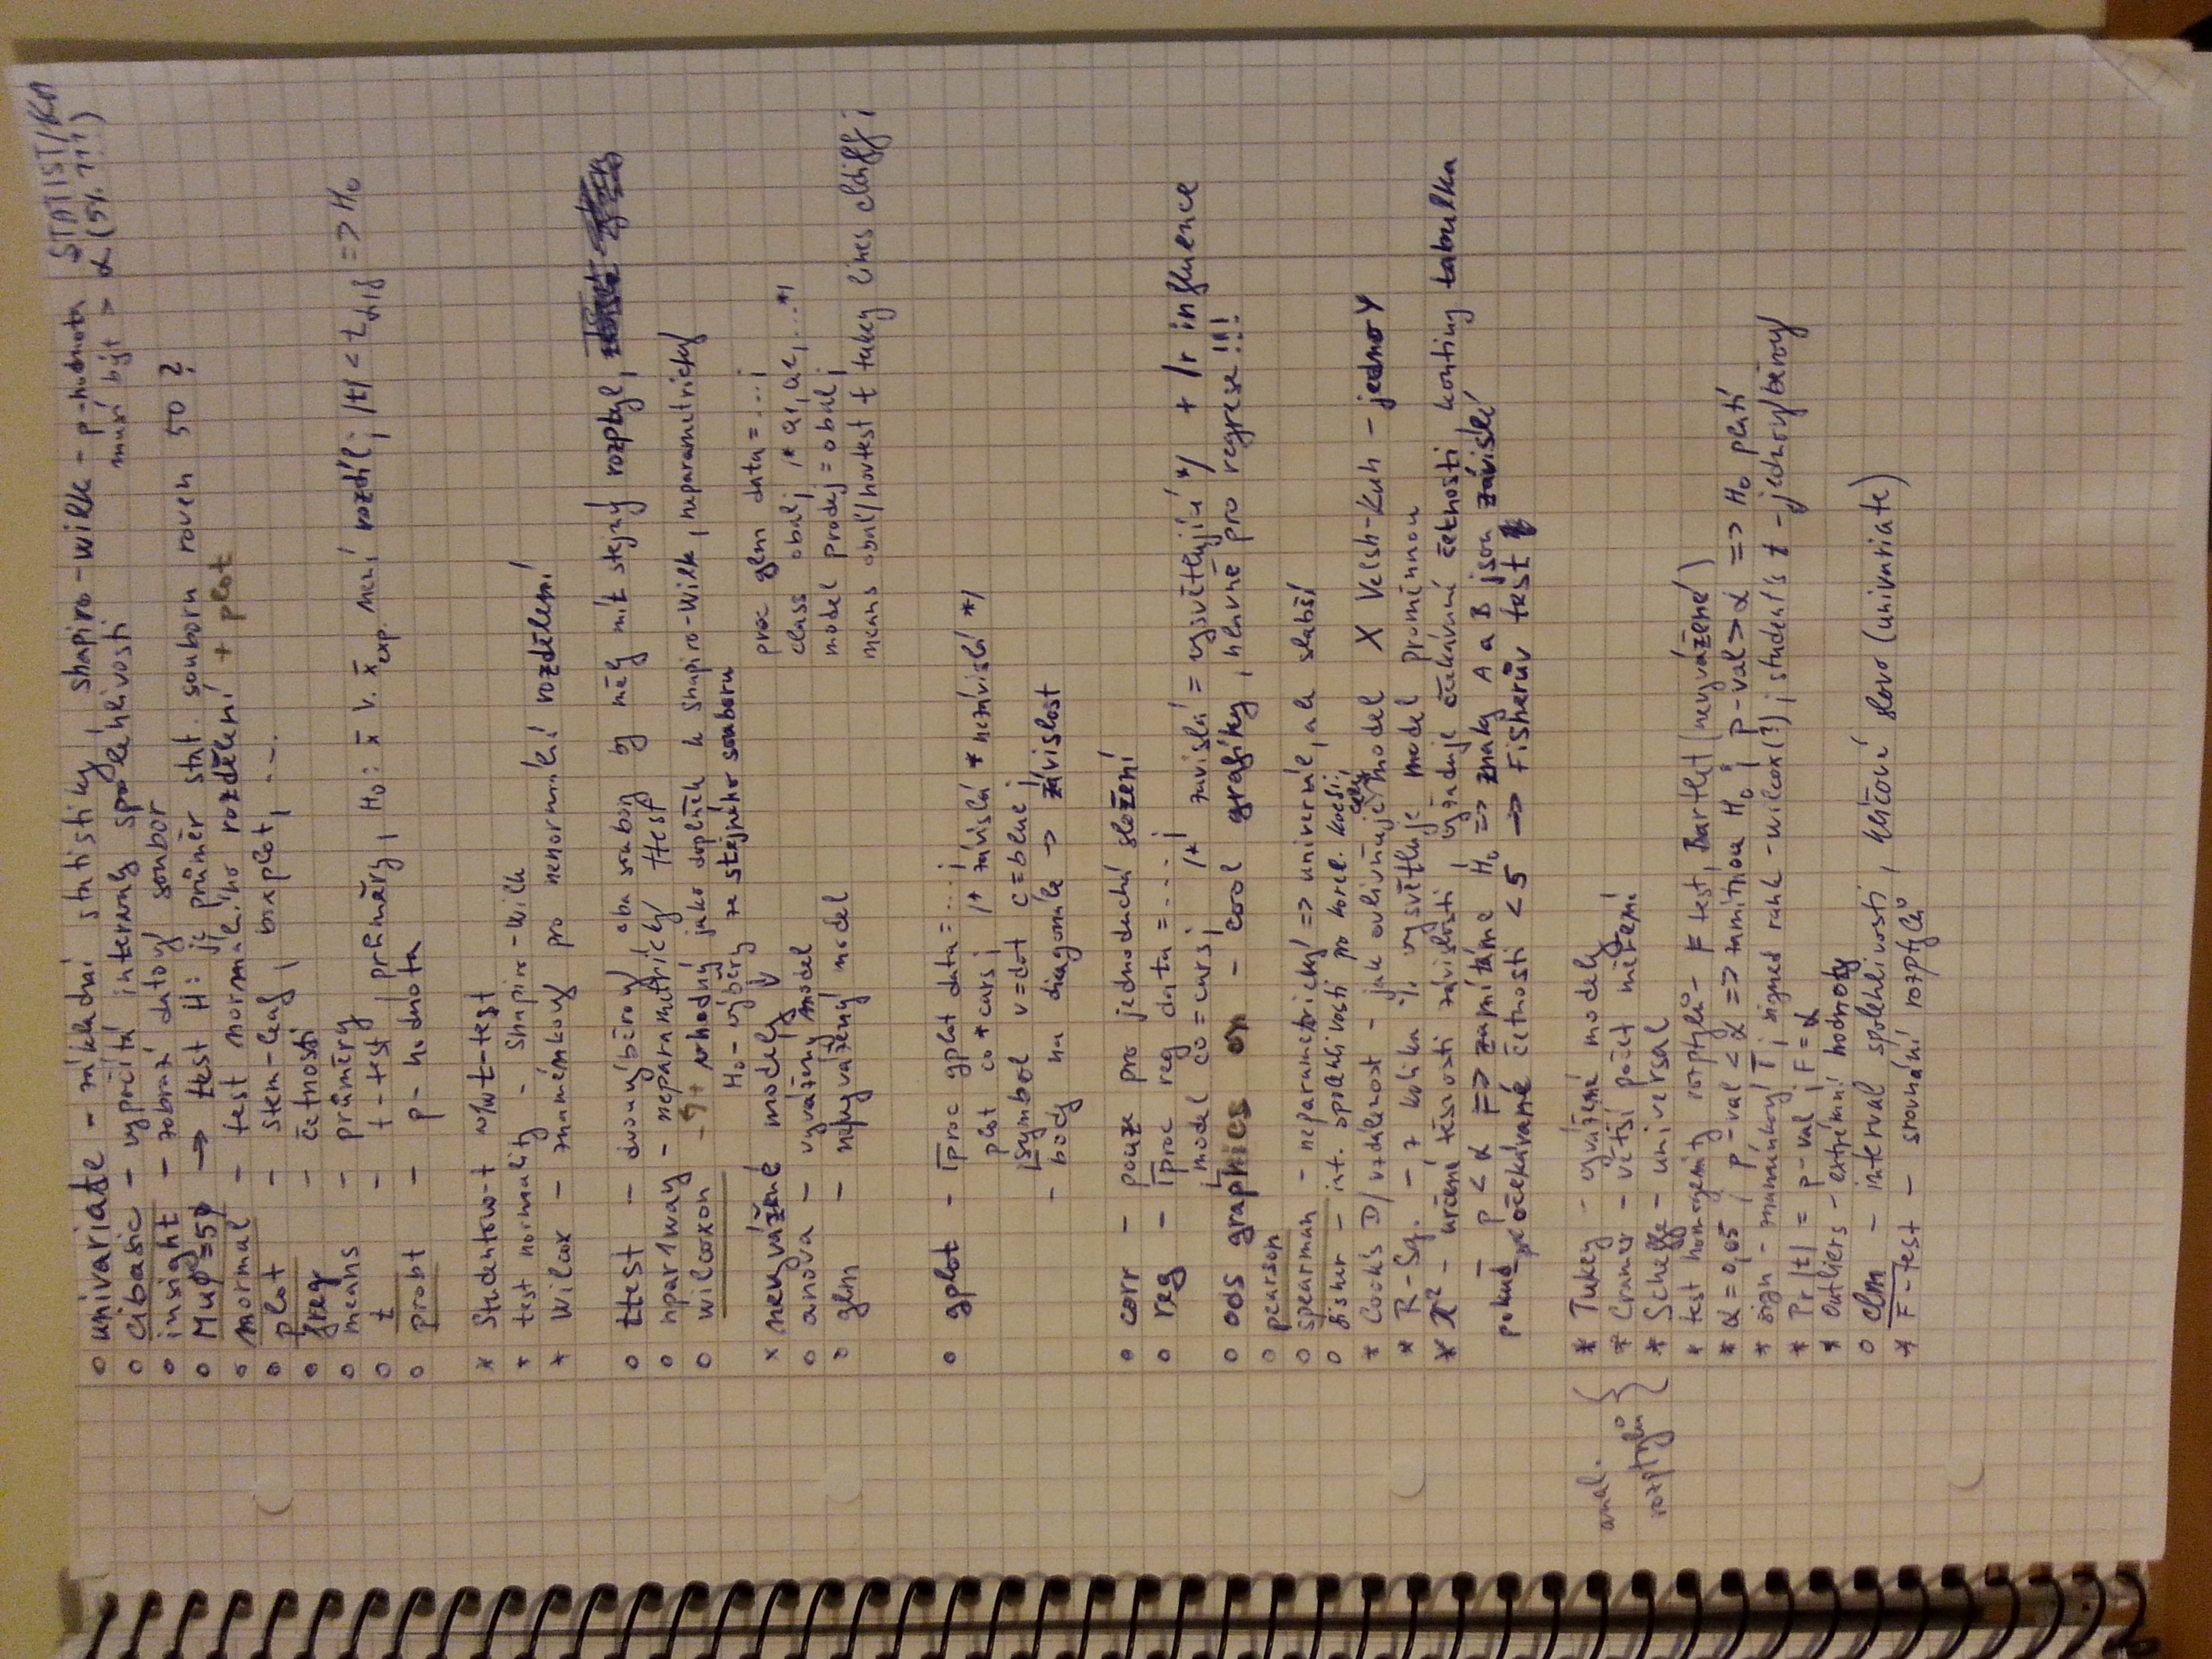 STATIST/KA
o univariate - základní statistiky, shapiro-wilk - p-hodnota
musí být > α (5% !!!)
o cibasic - vypočítá intervaly spolehlivosti
o insight - zobrazí datový soubor
o Mu0=50 → test H: je průměr stat. souboru roven 50?
o normal - test normálního rozdělení + plot
o plot - stem-leaf, boxplot, ...
o freq - četnosti
o means - průměry
o t - t-test, průměry, H0: x̄ v. x̄exp. není rozdíl; |t| < tα,f => H0
o probt - p-hodnota
* Studentův-t t-test
* test normality - shapiro-wilk
* Wilcox - znaménkový pro nenormální rozdělení
o ttest - dvouvýběrový, oba soubory by měly mít stejný rozptyl,
o npar1way - neparametrický ttest
o wilcoxon - vhodný jako doplněk k shapiro-wilk, neparametrický
H0 - výběry ze stejného souboru
x nevyvážené modely
o anova - vyvážený model
o glm - nevyvážený model
proc glm data=...;
class obal; /* a1, a2, ... */
model prodej = obal;
means obal/hovtest t tukey lines cldiff;
o gplot - proc gplot data=...;
plot co*cars; /* závislá * nezávislá */
symbol v=dot c=blue;
- body na diagonále → závislost
o corr - pouze pro jednoduchá složení
o reg - proc reg data=...;
model co=cars; /* závislá = vysvětlující */ + /r influence
o ods graphics on - cool grafiky, hlavně pro regrese!!!
o pearson
o spearman - neparametrický => univerzné, ale slabší
o fisher - int. spolehlivosti pro korel. koef.
* Cook's D/vzdálenost - jak ovlivňuje celý model X Velsh-Kuh - jednoY
* R-Sq. - z kolika % vysvětluje model proměnnou
* χ² - určení těsnosti závislosti, vyžaduje očekávané četnosti, konting tabulka
- p < α => zamítáme H0 => znaky A a B jsou závislé
pokud očekávané četnosti < 5 → Fisherův test
anal. rozptylu {
* Tukey - vyvážené modely
* Cramer - větší počet měření
* Scheffe - universal
* test homogenity rozptylů - F test, Bartlet (nevyvážené)
* α = 0,05, p-val < α => zamítnou H0; p-val > α => H0 platí
* sign - znaménkový T; signed rank - wilcox(!); student's t - jednovýběrový
* Pr|t| = p-val, F = α
* Outliers - extrémní hodnoty
o clm - interval spolehlivosti, klíčové slovo (univariate)
* F-test - srovnání rozptylů